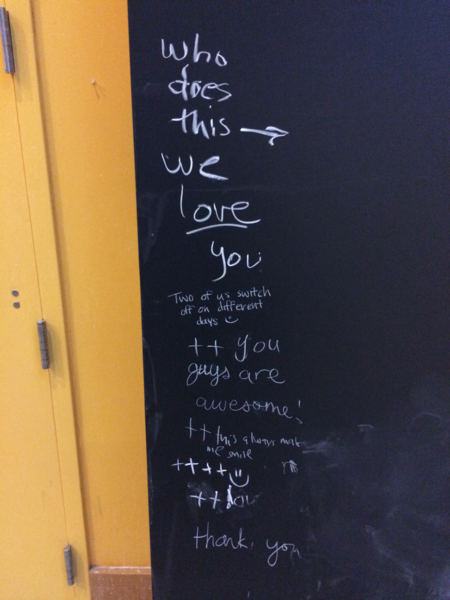 who
does
this →
we
love
you
Two of us switch
off on different
days
++ you
guys are
awesome!
++ this always make
me smile
++++
++
thank you